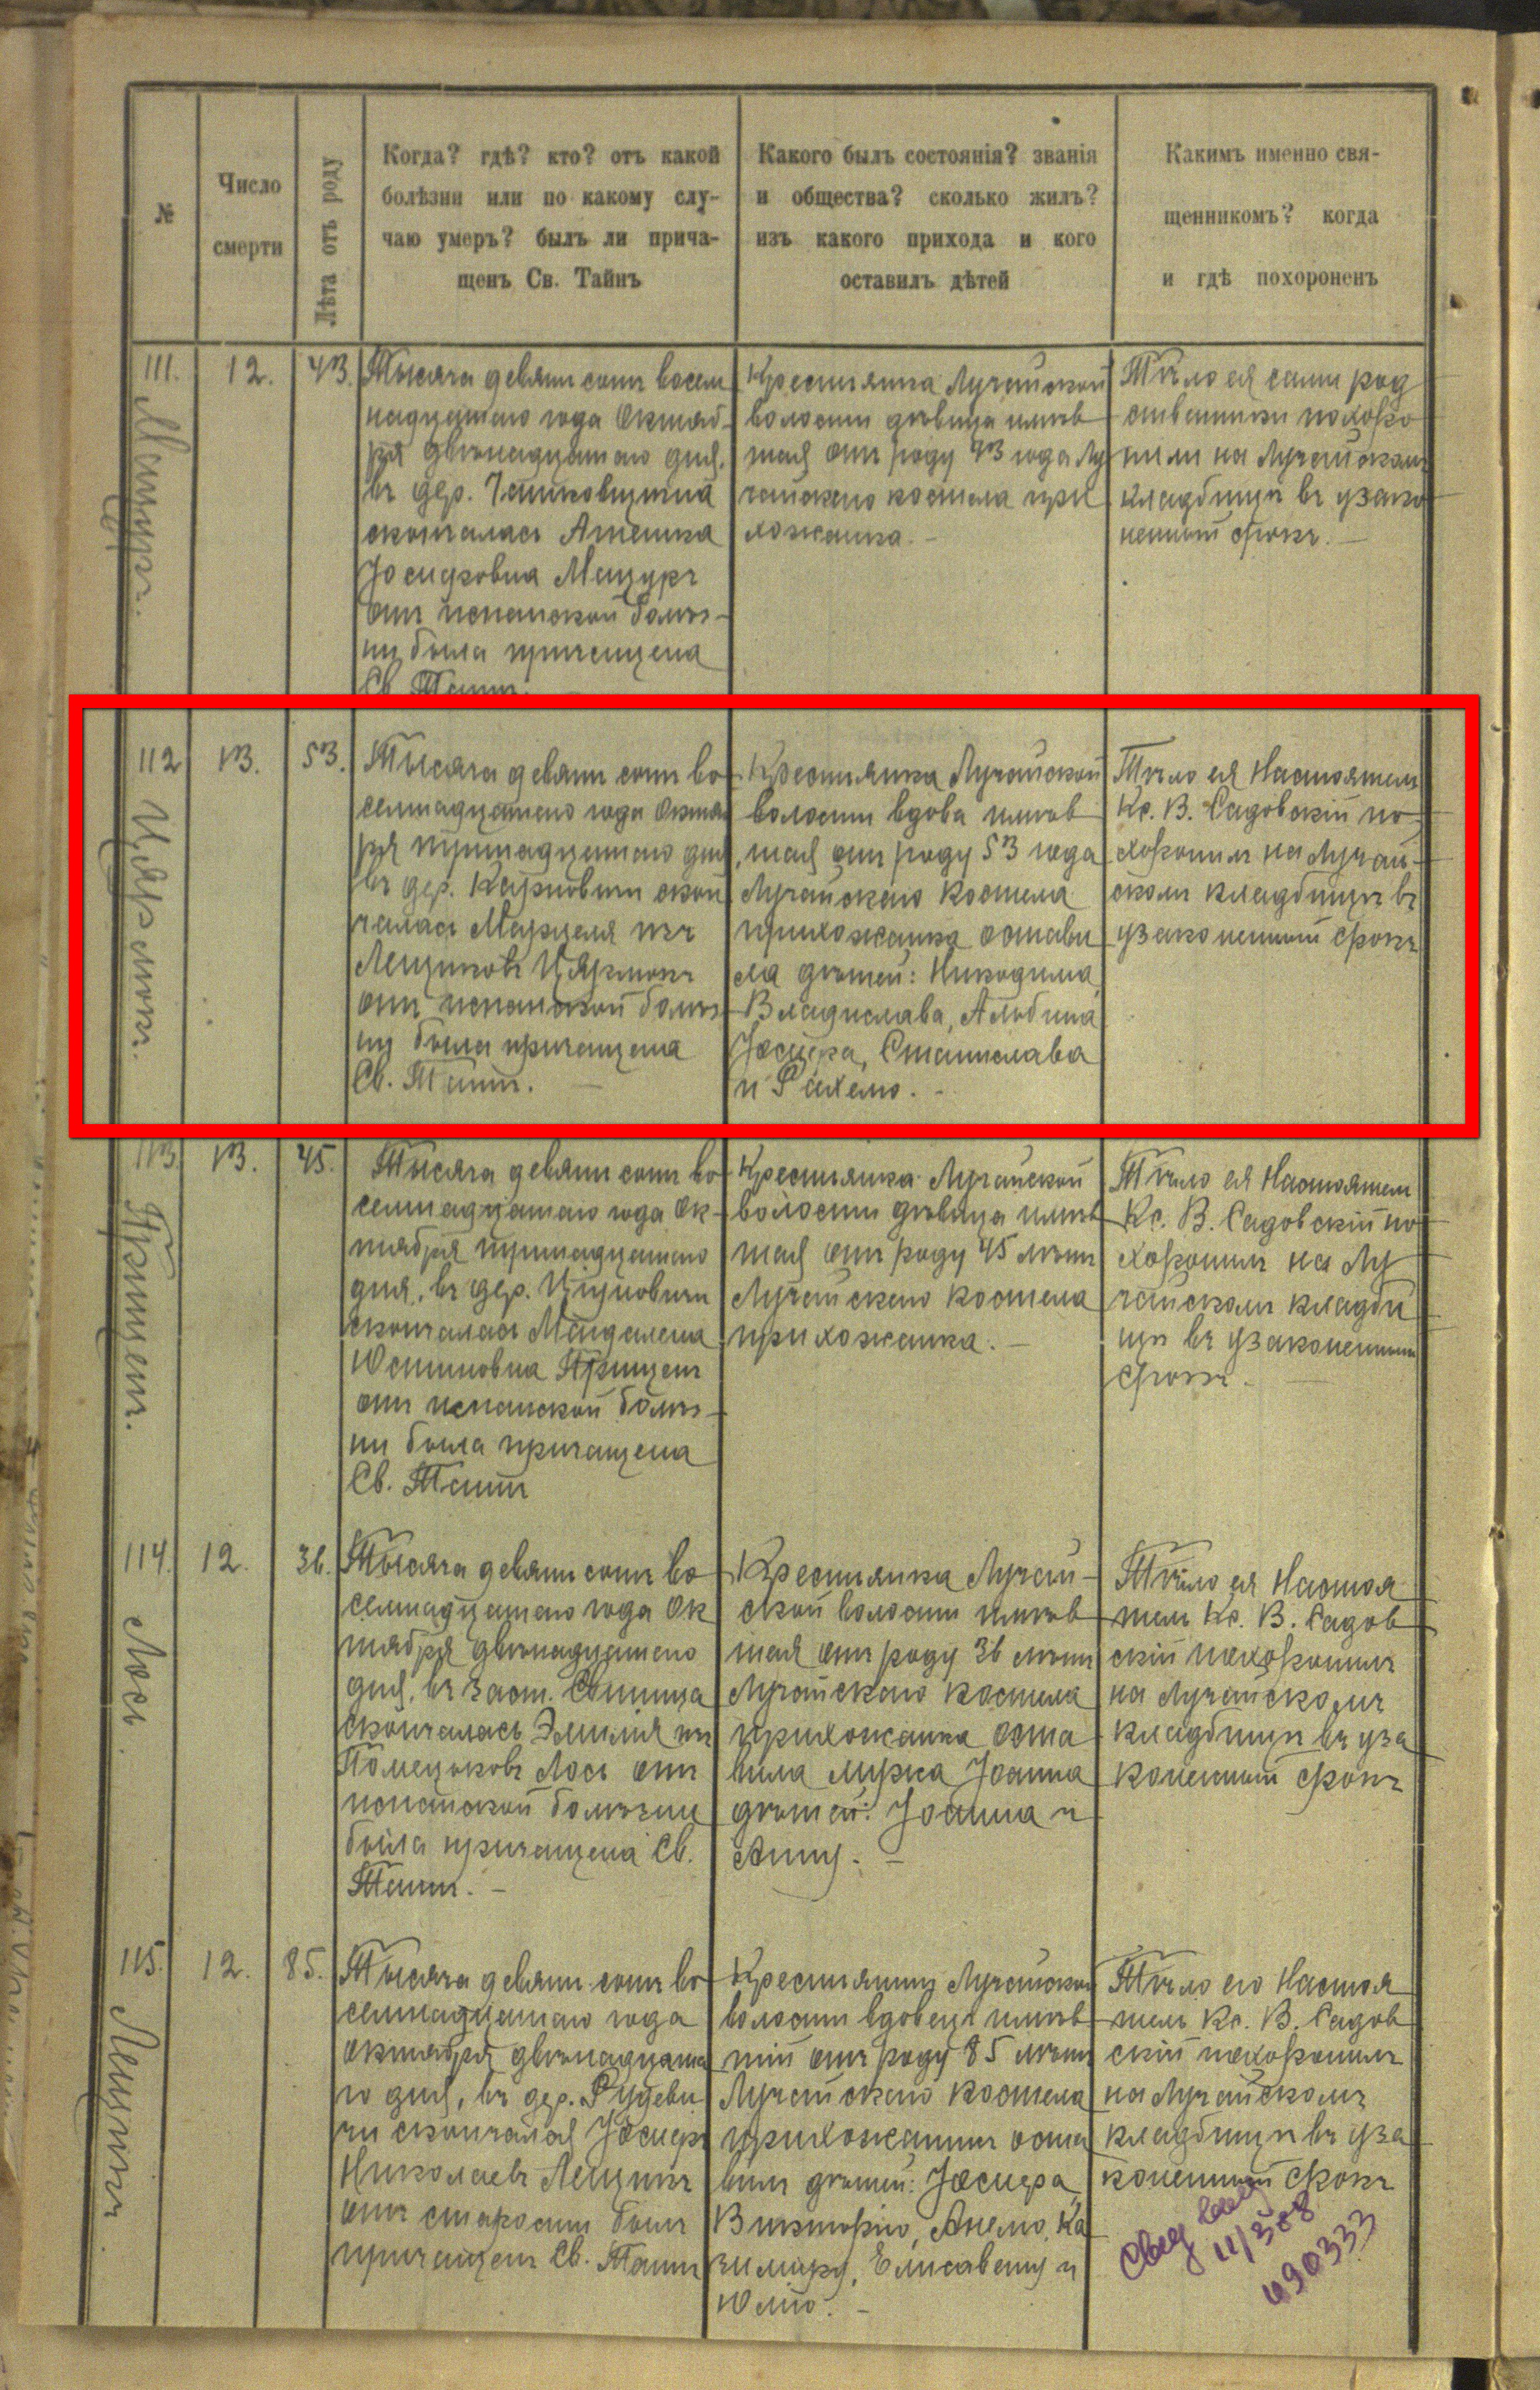 №
Число
смерти
Лѣта отъ роду
Когда? гдѣ? кто? отъ какой
болѣзни или по какому слу-
чаю умеръ? былъ ли прича-
щенъ Св. Тайнъ
Какого былъ состоянія? званія
и общества? сколько жилъ?
изъ какого прихода и кого
оставилъ дѣтей
Какимъ именно свя-
щенникомъ? когда
и гдѣ похороненъ
111.
Мацуръ.
12.
43.
Тысяча девятьсотъ восем
надцатаго года Октяб-
ря двѣнадцатаго дня,
въ дер.
скончалась
Іосифовна Мацуръ
отъ испанской болѣз-
ни была причащена
Св. Таинъ.
Крестьянка Лучайской
волости дѣвица имѣв
шая отъ роду 43 года Лу
чайскаго костела при
хожанка. -
Тѣло ея сами род
ственники похоро
нили на Лучайскомъ
кладбищѣ въ узако
ненный срокъ. -
112
Цярмокъ.
13.
53.
Тысяча девятьсотъ во-
семнадцатаго года Октяб
ря тринадцатаго дня,
въ дер. Карповичи скон
чалась Марцеля изъ
Лещиковъ Цярмокъ
отъ испанской болѣз-
ни была причащена
Св. Таинъ. -
Крестьянка Лучайской
волости вдова имѣв
шая отъ роду 53 года
Лучайскаго костела
прихожанка остави
ла дѣтей: Никодима,
Владислава, Альбина
Іосифа, Станислава
и Рахелю. -
Тѣло ея Настоятель
Кс. В. Садовскій по-
хоронилъ на Лучай-
скомъ кладбищѣ въ
узаконенный срокъ
113
Прицеп.
13.
45.
Тысяча девятьсотъ во-
семнадцатаго года Ок-
тября тринадцатаго
дня, въ дер. Цуцковичи
скончалась Магдалена
Юстиновна
отъ испанской болѣз-
ни была причащена
Св. Таинъ
Крестьянка Лучайской
волости дѣвица имѣв
шая отъ роду 45 лѣтъ
Лучайскаго костела
прихожанка. -
Тѣло ея Настоятель
Кс. В. Садовскій по-
хоронилъ на Лу
чайскомъ кладби
щѣ въ узаконенный
срокъ. -
114.
Лось
12.
36.
Тысяча девятьсотъ во-
семнадцатаго года Ок
тября двѣнадцатаго
дня, въ заст.
скончалась Эмилія изъ
Лось отъ
испанской болѣзни
была причащена Св.
Таинъ. -
Крестьянка Лучай-
ской волости имѣв
шая отъ роду 36 лѣтъ
Лучайскаго костела
прихожанка оста
вила мужа Іоанна
дѣтей: Іоанна и
Анну. -
Тѣло ея Настоя
тель Кс. В. Садов
скій похоронилъ
на Лучайскомъ
кладбищѣ въ уза
коненный срокъ
115.
Лещикъ
12.
85.
Тысяча девятьсотъ во-
семнадцатаго года
октября двѣнадцата
го дня, въ дер. Рудеви
чи скончался Іосифъ
Николаевъ Лещикъ
отъ старости былъ
причащенъ Св. Таинъ
Крестьянинъ Лучайской
волости вдовецъ имѣв
шій отъ роду 85 лѣтъ
Лучайскаго костела
прихожанинъ оста
вилъ дѣтей: Іосифа,
Викторію, Анелю, Ка
зимиру, Елисавету и
Юлію. -
Тѣло его Настоя
тель Кс. В. Садов
скій похоронилъ
на Лучайскомъ
кладбищѣ въ уза
коненный срокъ
090333